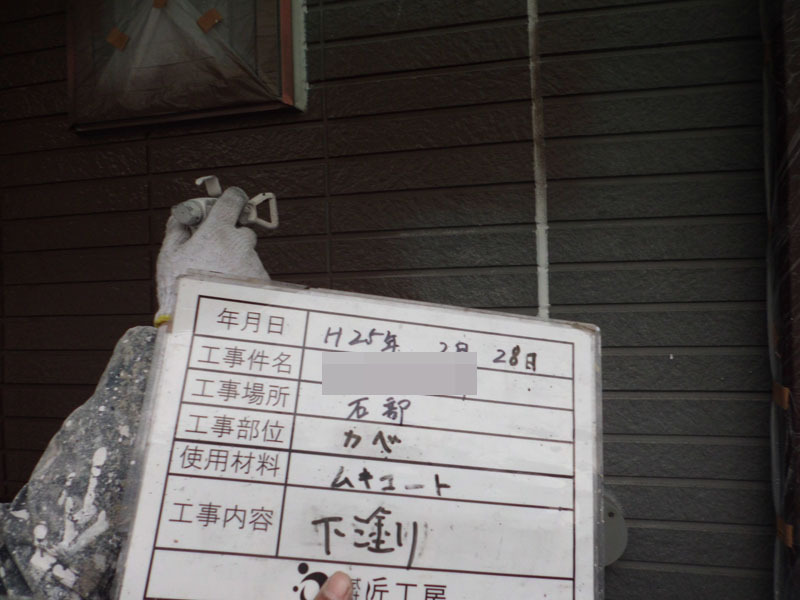 年月日 H25年 2月 28日
工事件名
工事場所 石部
工事部位 カベ
使用材料 ムキコート
工事内容 下塗り
匠工房